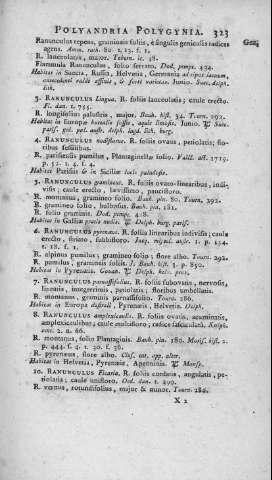 POLYANDRIA POLYGYNIA. 323
Ranunculus repens, gramineis foliis, è singulis geniculis radices
agens. Amm. ruth. 80 t. 13. f. 1.
R. lanceolatus, major. Tabern. ic. 48.
Flammula Ranunculus, folio serrato, Dod. pempt. 424.
Habitat in Suecia, Russia, Helvetia, Germania ad ripas lacuum,
3. RANUNCULUS Lingua. R. foliis lanceolatis; caule erecto.
Fl. dan. t. 755.
R. longifolius palustris, major. Bauh. hist. 34. Tourn. 292.
Habitat in Europæ borealis fossis, aquis limosis. Junio.
paris. gel. pal. austr. delph. lugd. lith. burg.
4. RANUNCULUS nodiflorus. R. foliis ovatis, petiolatis; floribus sessilibus.
R. parisiensis pumilus, Plantaginellæ folio. Vaill. act. 1719.
p. 52. t. 4. f. 4.
Habitat Parisiis & in Siciliæ locis paludosis.
5. RANUNCULUS gramineus. R. foliis ovato-linearibus, indivisis; caule erecto, lævissimo, paucifloro.
R. montanus, gramineo folio. Bauh. pin. 80. Tourn. 292.
R. gramineo folio, bulbosus. Bauh. pin. 181.
R. folio gramineo. Dod. pempt. 428.
Habitat in Galliæ pratis siccis. Delph. burg. paris.
6. RANUNCULUS pyrenæus. R. foliis linearibus indivisis; caule
erecto, striato, subbifloro. Jacq. miscel. austr. 1. p. 154.
t. 18. f. 1.
R. alpinus pumilus, gramineo folio; flore albo. Tourn. 292.
R. pumilus, gramineis foliis. J. Bauh. hist. 3. p. 850.
Habitat in Pyrenæis. Gouan. Delph. helv. prov.
7. RANUNCULUS parnassifolius. R. foliis subovatis, nervosis,
lineatis, integerrimis, petiolatis; floribus umbellatis.
R. montanus, graminis parnassi folio. Tourn. 286.
Habitat in Europa australi, Pyrenæis, Helvetia. Delph.
8. RANUNCULUS amplexicaulis. R. foliis ovatis, acuminatis,
amplexicaulibus; caule multifloro; radice fasciculatâ. Kniph.
cent. 2. n. 66.
R. montanus, folio Plantaginis. Bauh. pin. 180. Moris. hist. 2.
p. 444. s. 4. t. 30. f. 36.
R. pyrenæus, flore albo. Clus. cur. app. alter.
Habitat in Helvetia, Pyrenæis, Apenninis.
10. RANUNCULUS Ficaria. R. foliis cordatis, angulatis, petiolatis; caule unifloro. Oed. dan. t. 499.
R. vernus, rotundifolius, major & minor. Tourn. 286.
X 2